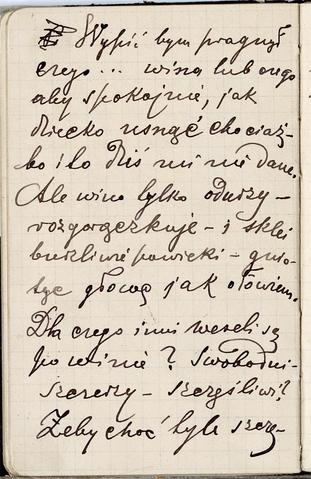 Wypić bym pragnął
czego... wina lub czego
aby spokojnie, jak
dziecko usnąć chociaż-
bo i to dziś mi nie dane.
Ale wino tylko odurzy -
rozgorączkuje - i sklei
burzliwie powieki - gnio-
tąc głowę jak ołowiem.
Dla czego inni weseli są
po winie? Swobodni -
szczerzy - szczęśliwi?
Żeby choć tyle szczę-